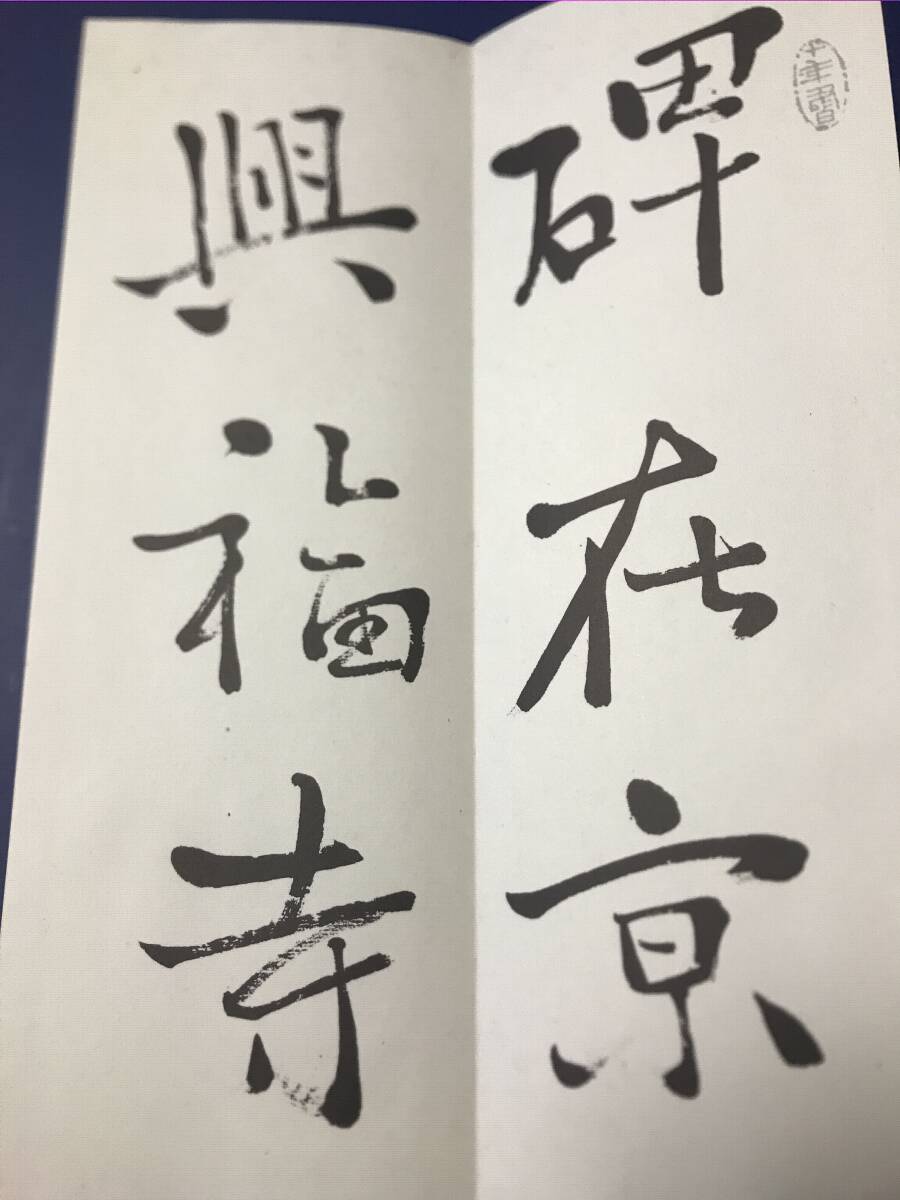 碑在京
興福寺